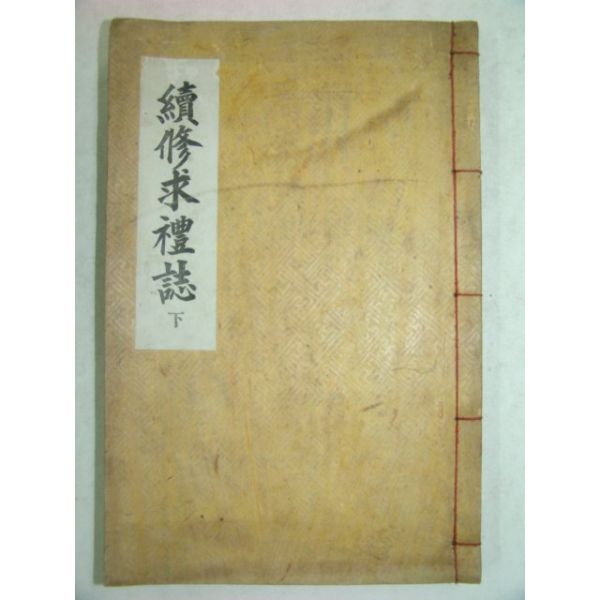 續修求禮誌
下